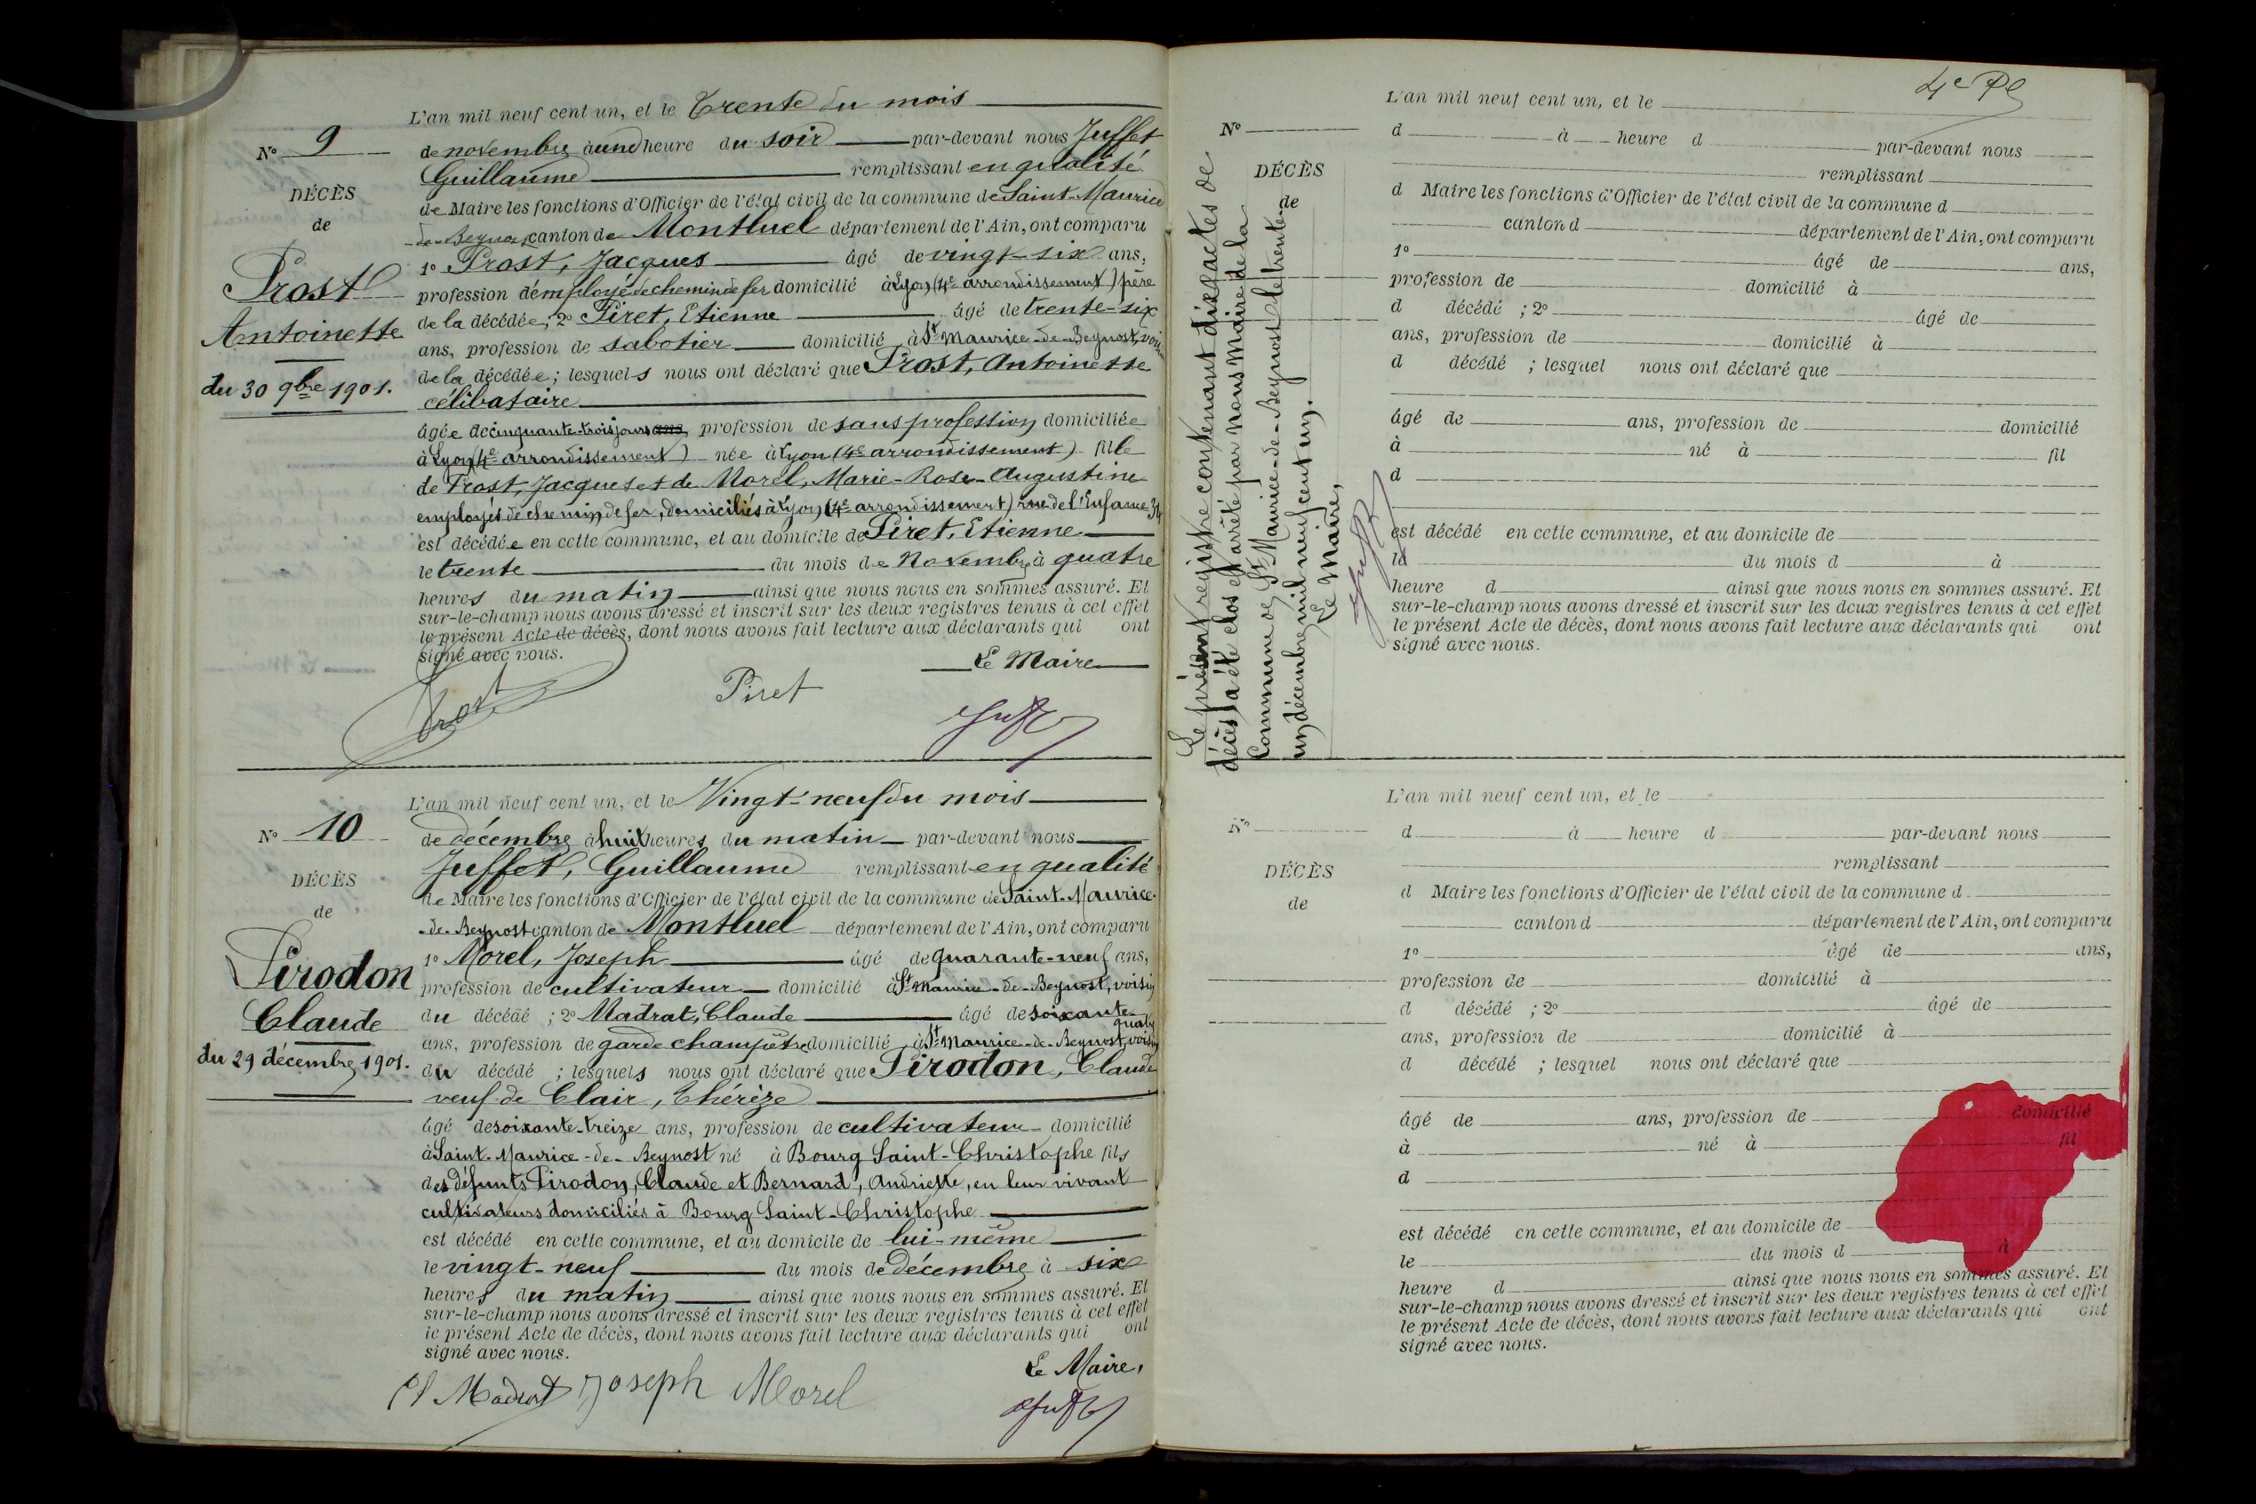 L'an mil neuf cent un, et le Trente du mois
N° 9
de novembre à une heure du soir par-devant nous Juffet
Guillaume remplissant en qualité
DÉCÈS
de Maire les fonctions d'Officier de l'état civil de la commune de Saint-Maurice
de
-de-Beynost canton de Montluel département de l'Ain, ont comparu
1° Prost, Jacques âgé de vingt-six ans,
Prost
profession d'employé de chemin de fer domicilié à Lyon (4e arrondissement) père
de la décédée; 2° Piret, Etienne âgé de trente-six
Antoinette
ans, profession de sabotier domicilié à St Maurice-de-Beynost, voisin
de la décédée; lesquels nous ont déclaré que Prost, Antoinette
du 30 9bre 1901.
célibataire
âgée de cinquante-trois jours ans, profession de sans profession domiciliée
à Lyon (4e arrondissement) née à Lyon (4e arrondissement) fille
de Prost, Jacques et de Morel, Marie-Rose-Augustine
employés de chemin de fer, domiciliés à Lyon (4e arrondissement) rue de l'Enfance 34
est décédée en cette commune, et au domicile de Piret, Etienne
le trente du mois de Novembre à quatre
heures du matin ainsi que nous nous en sommes assuré. Et
sur-le-champ nous avons dressé et inscrit sur les deux registres tenus à cet effet
le présent Acte de décès, dont nous avons fait lecture aux déclarants qui ont
signé avec nous.
Le Maire
Prost Piret Juffet
L'an mil neuf cent un, et le Vingt-neuf du mois
N° 10
de décembre à huit heures du matin par-devant nous
Juffet, Guillaume remplissant en qualité
DÉCÈS
de Maire les fonctions d'Officier de l'état civil de la commune de Saint-Maurice-
de
-de-Beynost canton de Montluel département de l'Ain, ont comparu
1° Morel, Joseph âgé de quarante-neuf ans,
Pirodon
profession de cultivateur domicilié à St Maurice-de-Beynost, voisin
Claude
du décédé ; 2° Madrat, Claude âgé de soixante-quatre
ans, profession de garde champêtre domicilié à St Maurice-de-Beynost, voisin
du 29 décembre 1901.
du décédé ; lesquels nous ont déclaré que Pirodon, Claude
veuf de Clair, Thérèze
âgé de soixante-treize ans, profession de cultivateur domicilié
à Saint-Maurice-de-Beynost né à Bourg Saint-Christophe fils
des défunts Pirodon, Claude et Bernard, Andriette, en leur vivant
cultivateurs domiciliés à Bourg Saint-Christophe
est décédé en cette commune, et au domicile de lui-même
le vingt-neuf du mois de décembre à six
heures du matin ainsi que nous nous en sommes assuré. Et
sur-le-champ nous avons dressé et inscrit sur les deux registres tenus à cet effet
le présent Acte de décès, dont nous avons fait lecture aux déclarants qui ont
signé avec nous.
Le Maire,
Cl Madrat Joseph Morel Juffet
Le présent registre contenant dix actes de
décès, a été clos et arrêté par nous Maire de la
Commune de St Maurice-de-Beynost le trente-
un décembre mil neuf cent un.
Le Maire,
Juffet
4e Pl
L'an mil neuf cent un, et le
N°
d à heure d par-devant nous
remplissant
DÉCÈS
d Maire les fonctions d'Officier de l'état civil de la commune d
de
canton d département de l'Ain, ont comparu
1° âgé de ans,
profession de domicilié à
d décédé ; 2° âgé de
ans, profession de domicilié à
d décédé ; lesquel nous ont déclaré que
âgé de ans, profession de domicilié
à né à fil
d
est décédé en cette commune, et au domicile de
le du mois d à
heure d ainsi que nous nous en sommes assuré. Et
sur-le-champ nous avons dressé et inscrit sur les deux registres tenus à cet effet
le présent Acte de décès, dont nous avons fait lecture aux déclarants qui ont
signé avec nous.
L'an mil neuf cent un, et le
N°
d à heure d par-devant nous
remplissant
DÉCÈS
d Maire les fonctions d'Officier de l'état civil de la commune d
de
canton d département de l'Ain, ont comparu
1° âgé de ans,
profession de domicilié à
d décédé ; 2° âgé de
ans, profession de domicilié à
d décédé ; lesquel nous ont déclaré que
âgé de ans, profession de domicilié
à né à fil
d
est décédé en cette commune, et au domicile de
le du mois d à
heure d ainsi que nous nous en sommes assuré. Et
sur-le-champ nous avons dressé et inscrit sur les deux registres tenus à cet effet
le présent Acte de décès, dont nous avons fait lecture aux déclarants qui ont
signé avec nous.